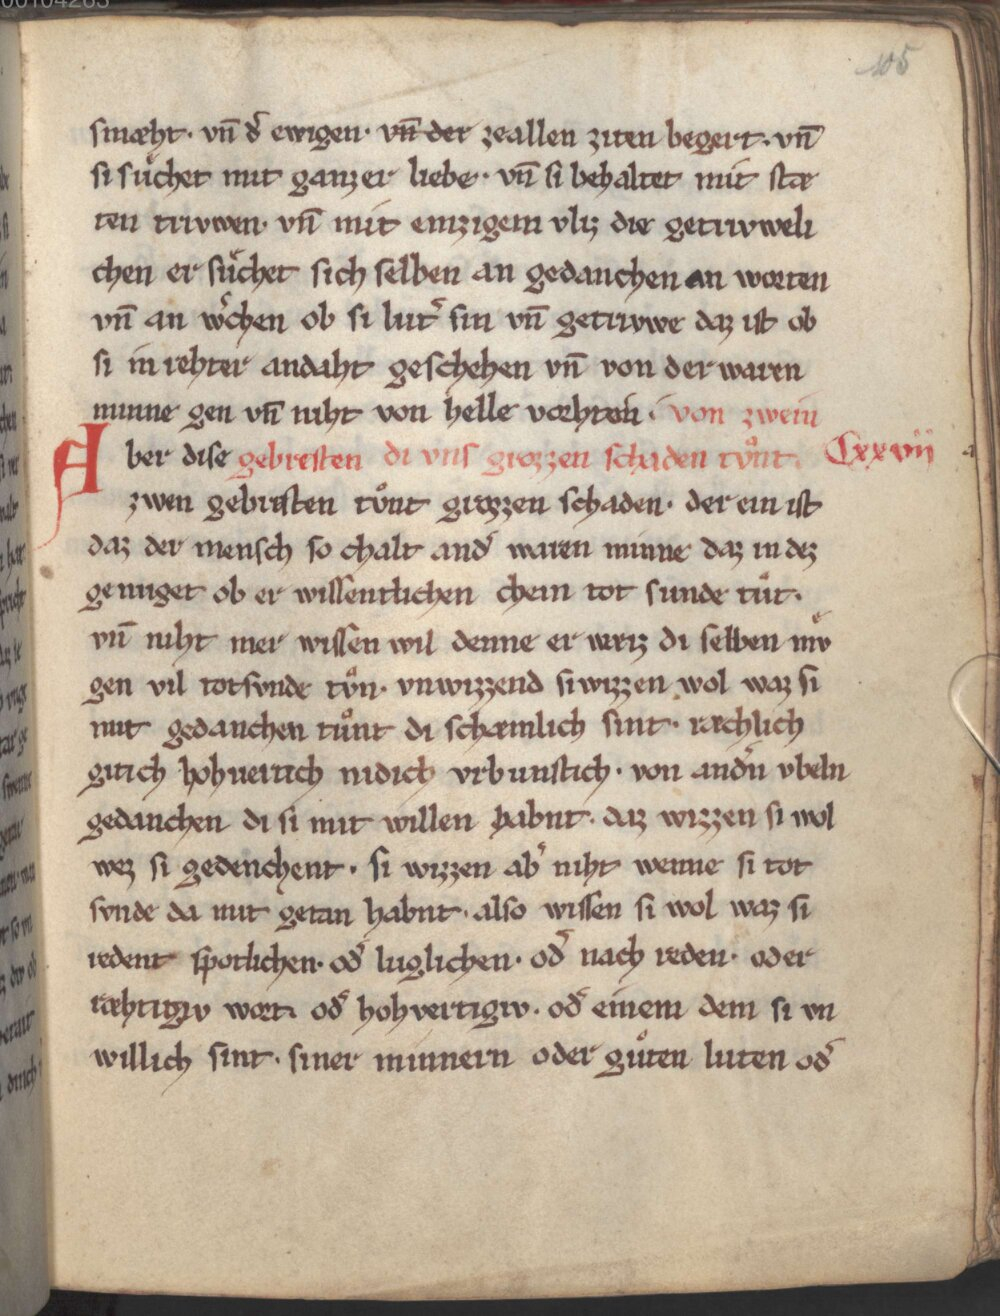 105
smæht· vn̄ d͛ ewigen· vn̄ der zeallen ziten begert· vn̄
si sůchet mit ganzer liebe· vn̄ si behaltet mit stæ
ten triwen· vn̄ mit emzigem vliz die getriweli
chen er sůchet sich selben an gedanchen an worten
vn̄ an w͛chen ob si lut͛ sin vn̄ getriwe daz ist ob
si in rehter andaht geschehen vn̄ von der waren
minne gen vn̄ niht von helle vorhten· von zwein
Aber dise gebresten di vns grozzen schaden tv̊nt. Cxxvii
zwen gebristen tůnt grozzen schaden· der ein ist
daz der mensch so chalt and͛ waren minne daz in dez
genuget ob er wissentlichen chein tot sunde tůt·
vn̄ niht mer wissen wil denne er weiz di selben mv̊
gen vil totsvnde tv̊n· vnwizzend si wizzen wol waz si
mit gedanchen tůnt di schæmlich sint· ræchlich
gitich hohvertich nidich vrbunstich· von and͛n vbeln
gedanchen di si mit willen habnt· daz wizzen si wol
wez si gedenchent· si wizzen ab͛ niht wenne si tot
svnde da mit getan habnt· also wissen si wol waz si
redent spotlichen· od͛ luglichen· od͛ nach reden· oder
ræhtigiv wort· od͛ hohvertigiv· od͛ einem dem si vn
willich sint· siner minnern oder gůten luten od͛